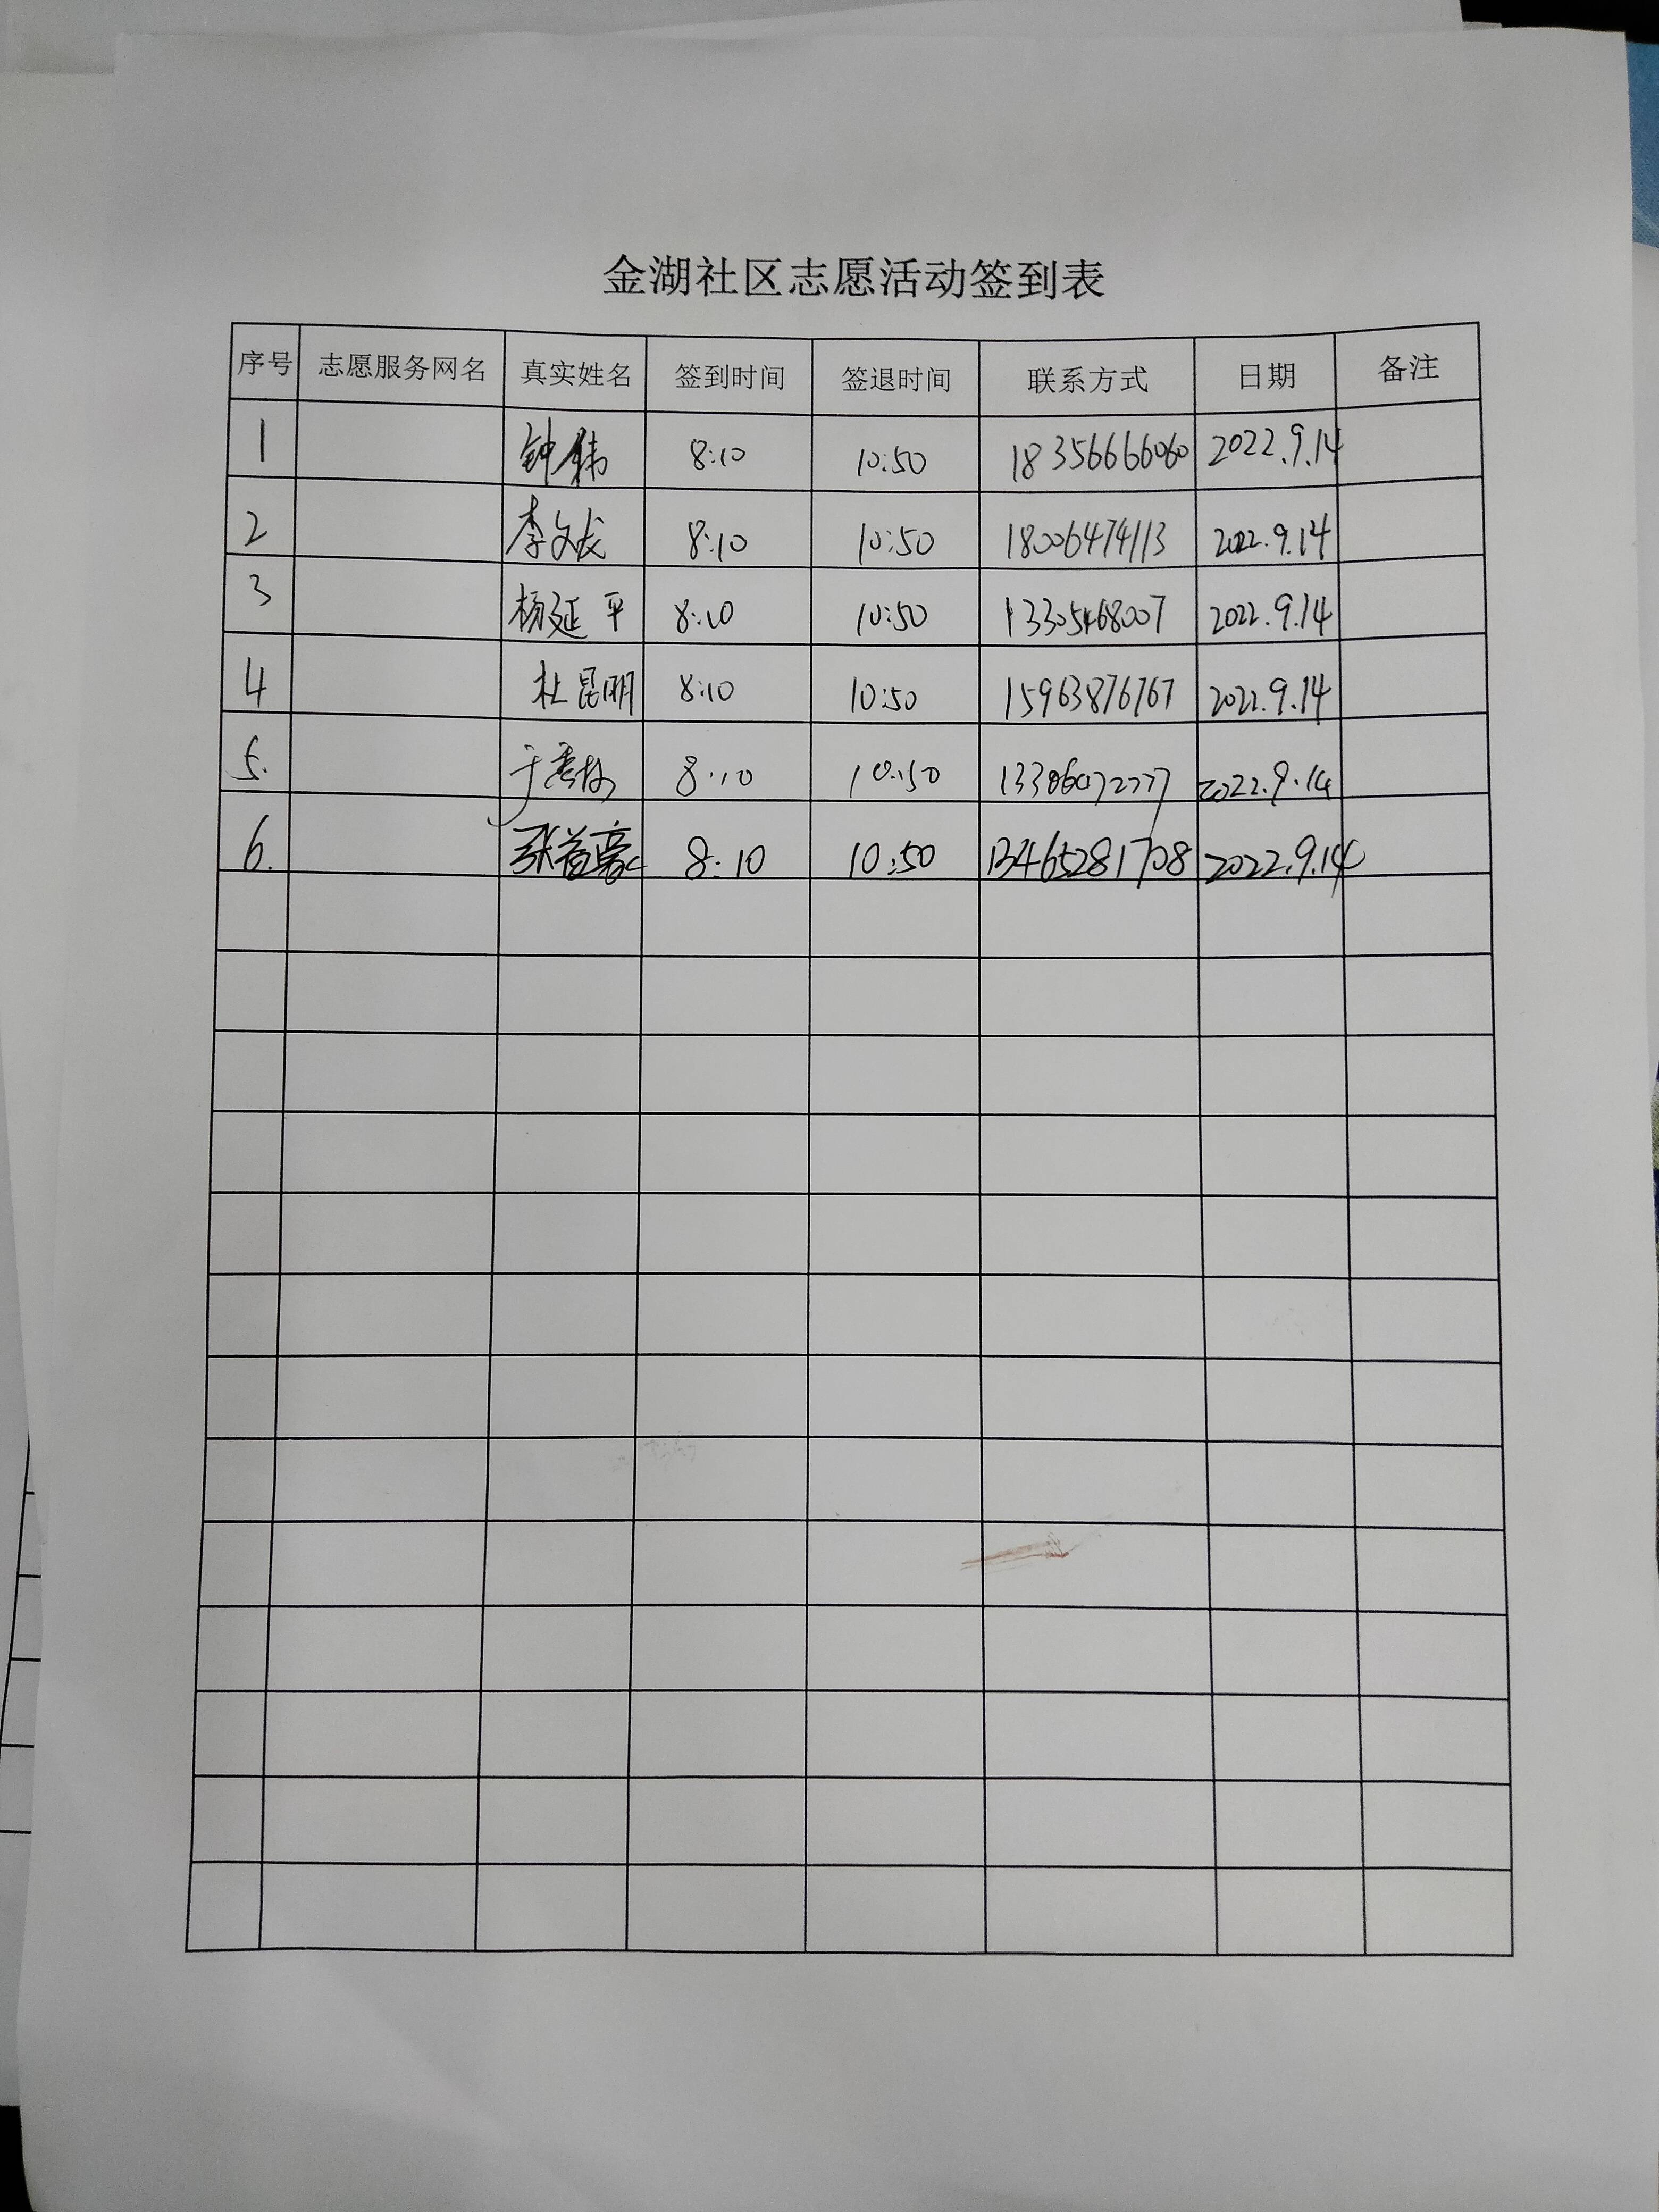 金湖社区志愿活动签到表
序号 志愿服务网名 真实姓名 签到时间 签退时间 联系方式 日期 备注
1 钟伟 8:10 10:50 18356666060 2022.9.14
2 李文龙 8:10 10:50 18006474113 2022.9.14
3 杨延平 8:10 10:50 13305468007 2022.9.14
4 杜昆明 8:10 10:50 15963876767 2022.9.14
5. 8:10 10:50 2022.9.14
6. 8:10 10:50 13465281708 2022.9.14